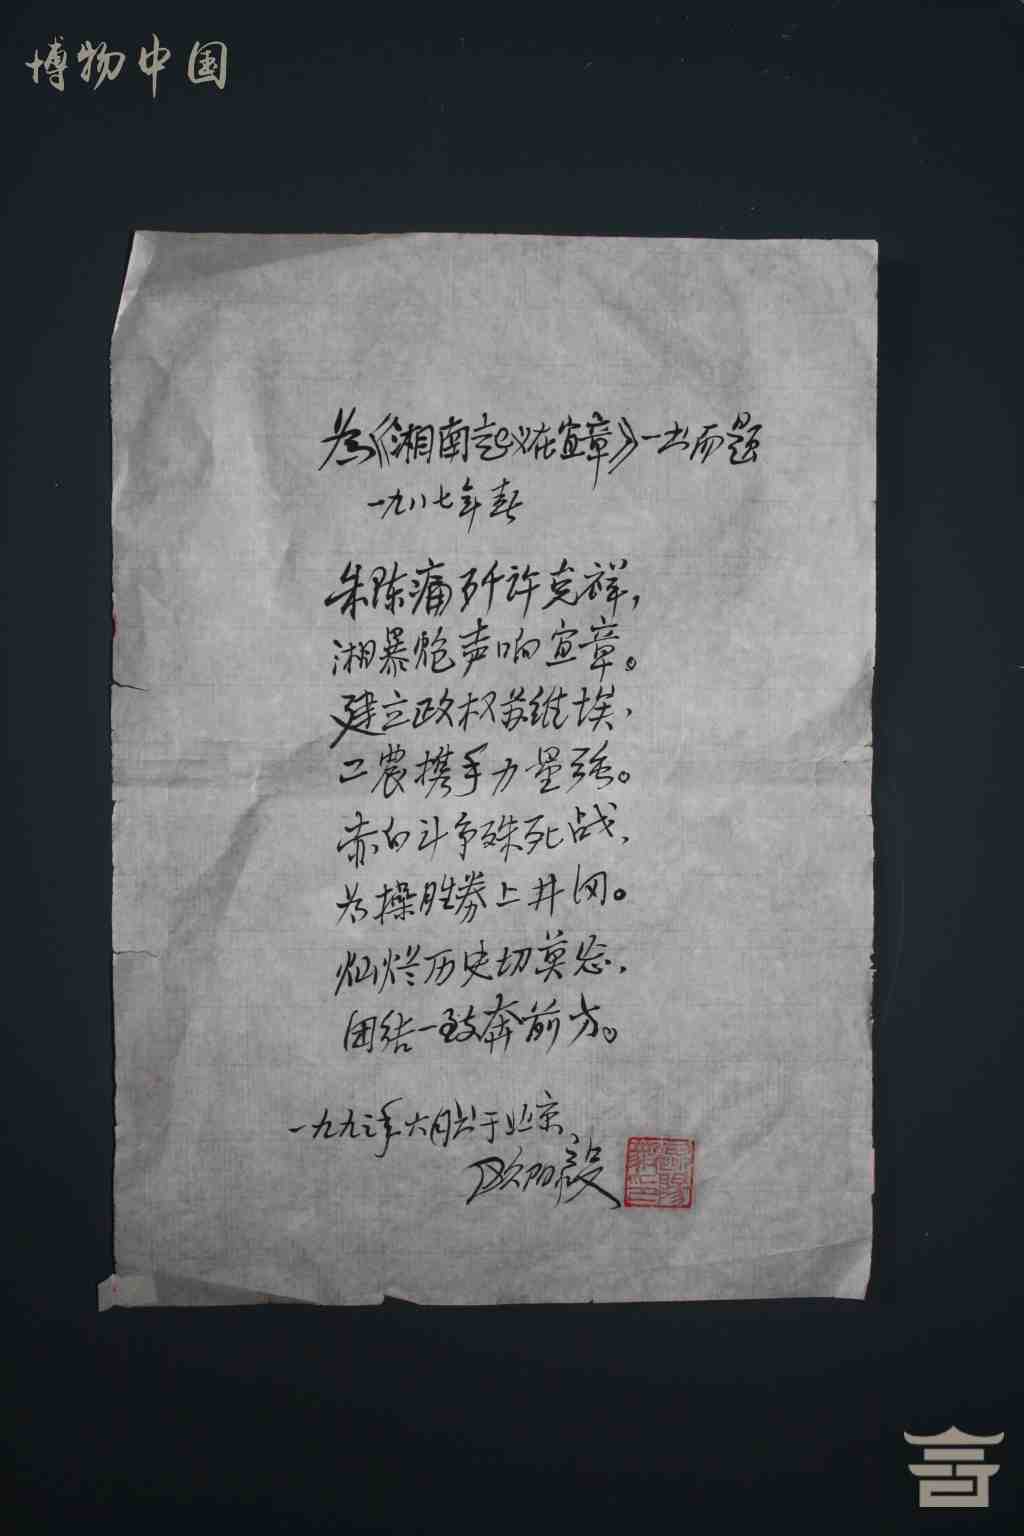 博物中国
为《湘南起义在宜章》一书而题
一九八七年春
朱陈痛歼许克祥，
湘暴炮声响宜章。
建立政权苏维埃，
工农携手力量强。
赤白斗争殊死战，
为操胜券上井冈。
灿烂历史切莫忘，
团结一致奔前方。
一九九三年六月书于北京
欧阳毅
欧阳毅印